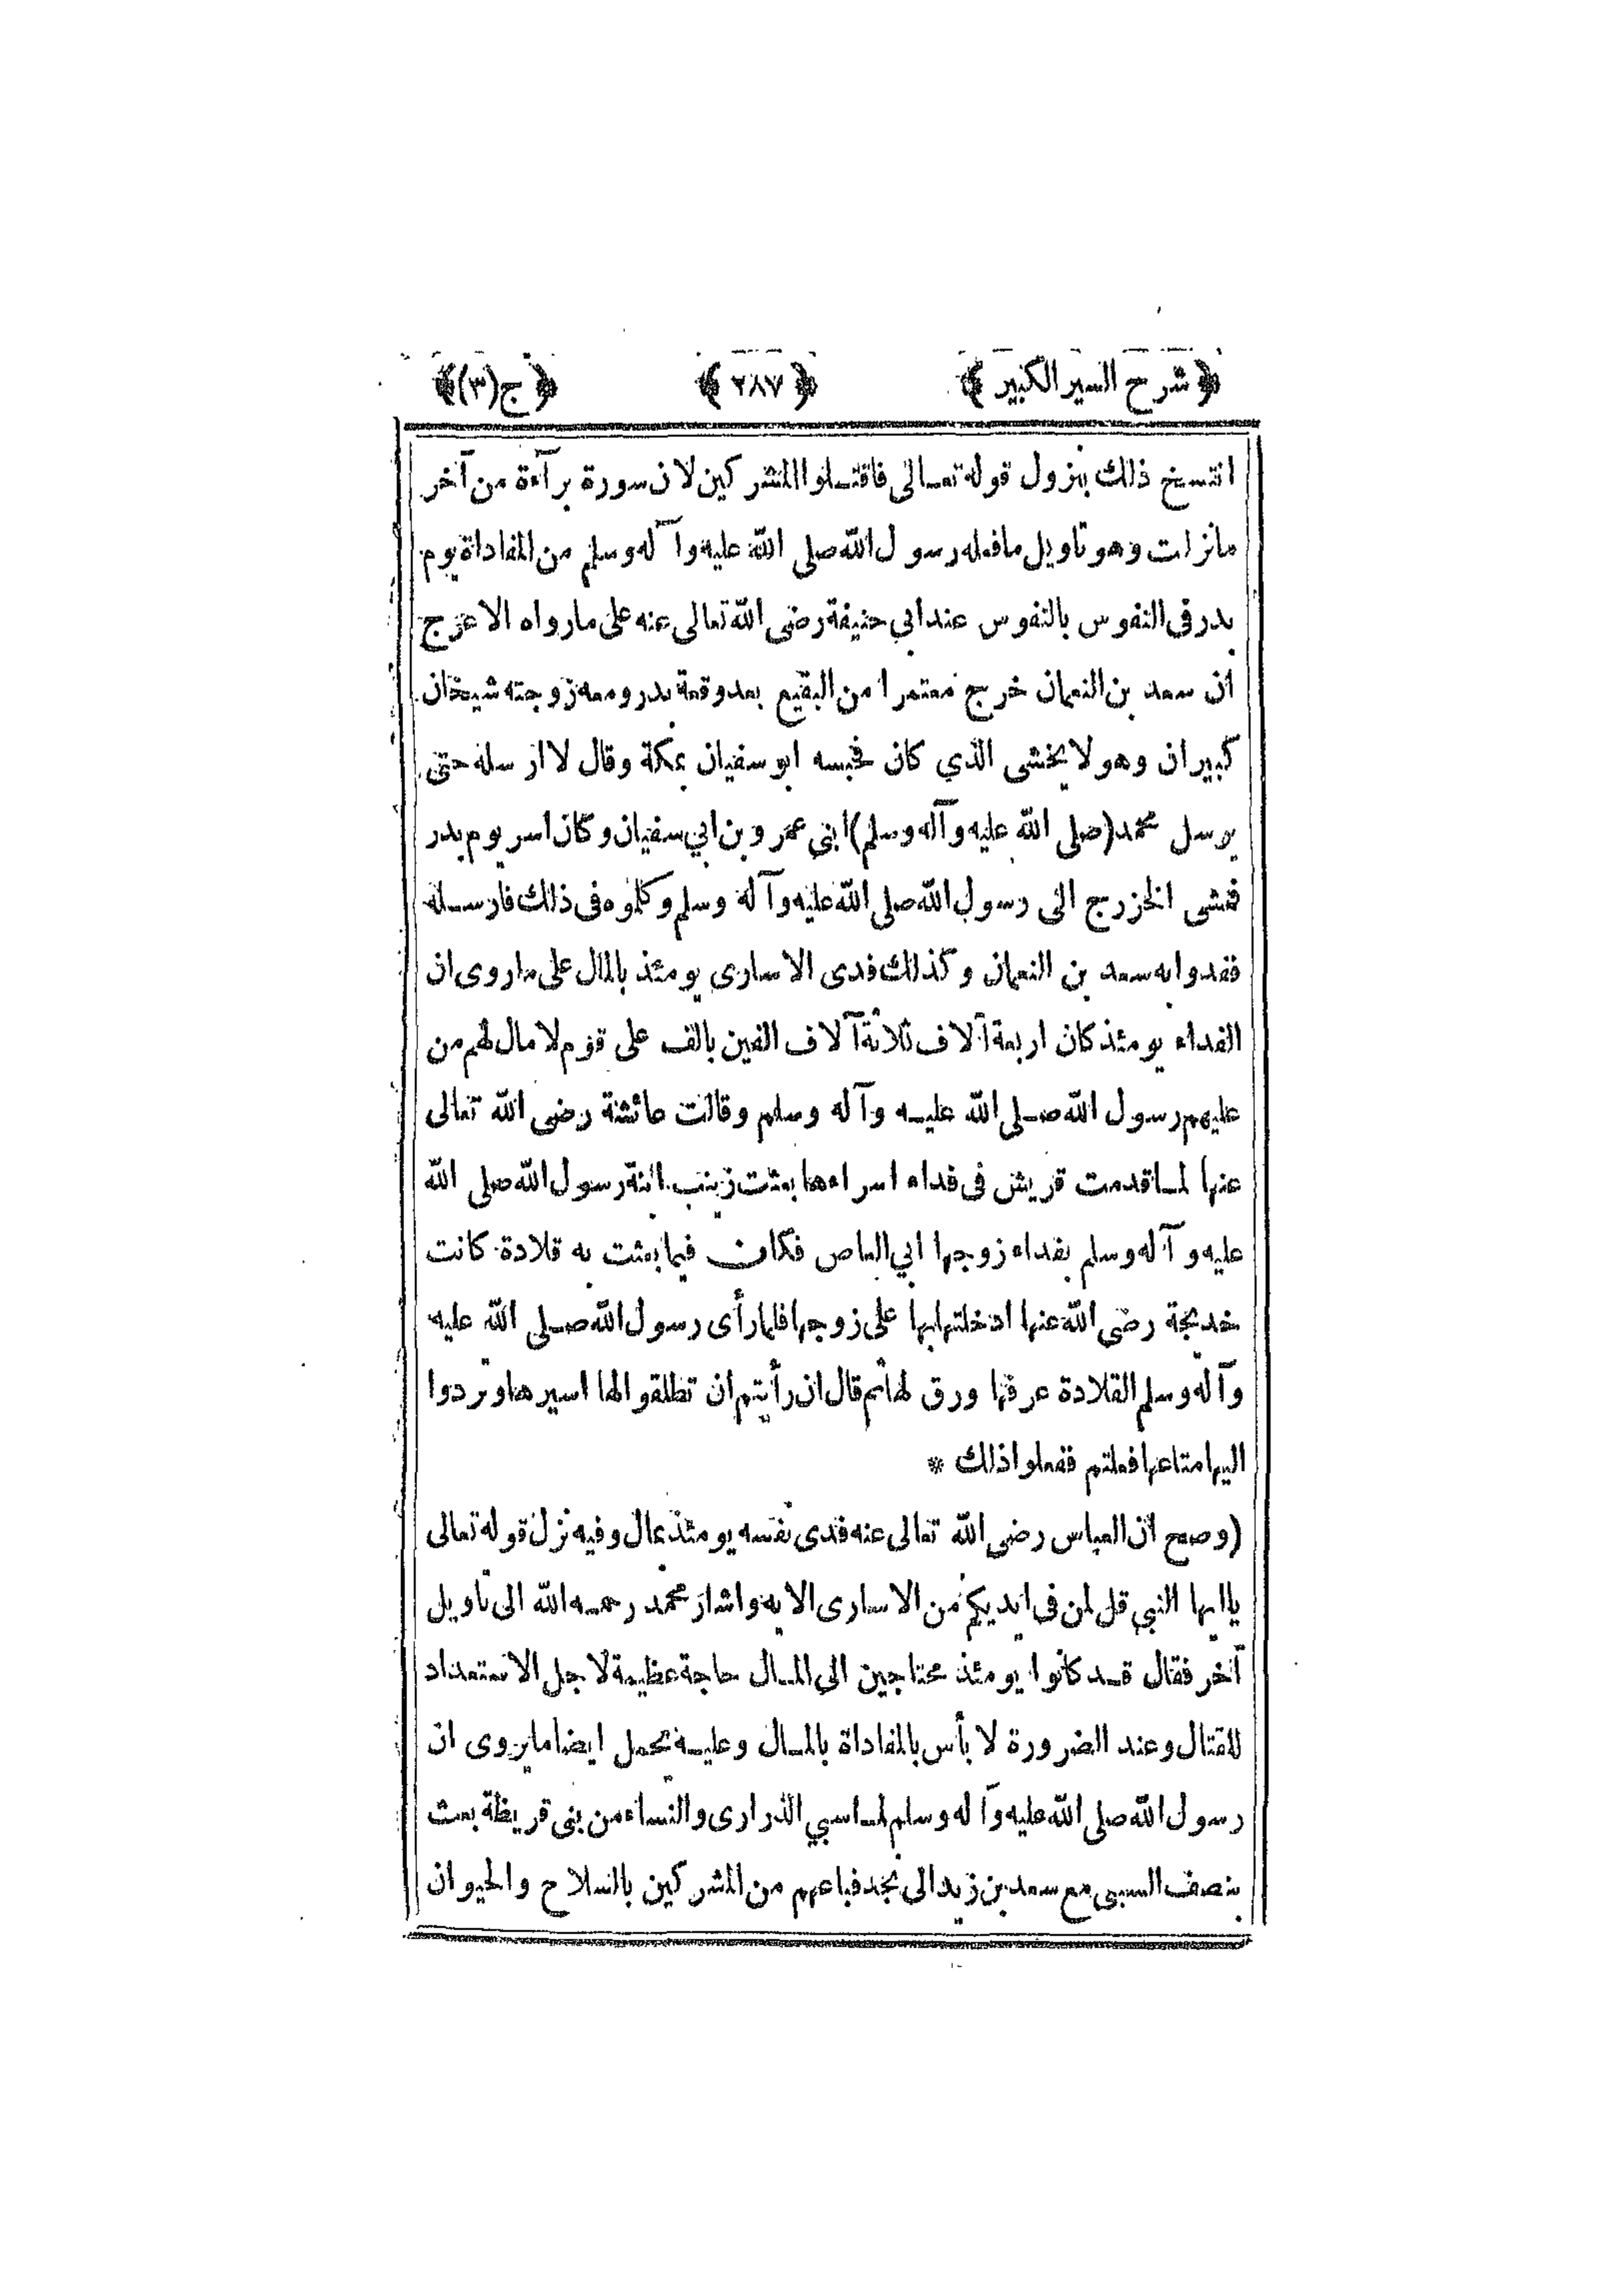 ﴿ شرح السير الكبير ﴾ ﴿ ٢٨٧ ﴾ ﴿ ج(٣) ﴾
انتسخ ذلك بنزول قوله تعالى فاقتلوا المشركين لان سورة برآءة من آخر
ما نزلت وهو تاويل ما فعله رسول الله صلى الله عليه وآله وسلم من المفاداة يوم
بدر في النفوس بالنفوس عند ابي حنيفة رضى الله تعالى عنه على ما رواه الاعرج
ان سعد بن النعمان خرج معتمرا من البقيع بعد وقعة بدر ومعه زوجته شيخان
كبيران وهو لا يخشى الذي كان فحبسه ابو سفيان بمكة وقال لا ارسله حتى
يرسل محمد (صلى الله عليه وآله وسلم) ابنى عمرو بن ابي سفيان وكان اسر يوم بدر
فمشى الخزرج الى رسول الله صلى الله عليه وآله وسلم وكلموه فى ذلك فارسله
ففدوا به سعد بن النعمان وكذلك فدى الاسارى يومئذ بالمال على ما روى ان
الفداء يومئذ كان اربعة آلاف ثلاثة آلاف الفين بالف على قوم لا مال لهم من
عليهم رسول الله صلى الله عليه وآله وسلم وقالت عائشة رضى الله تعالى
عنها لما قدمت قريش فى فداء اسراءها بعثت زينب ابنة رسول الله صلى الله
عليه وآله وسلم بفداء زوجها ابي العاص فكان فيما بعثت به قلادة كانت
خديجة رضى الله عنها ادخلتها بها على زوجها فلما رأى رسول الله صلى الله عليه
وآله وسلم القلادة عرفها ورق لها ثم قال ان رأيتم ان تطلقوا لها اسيرها وتردوا
اليها متاعها فعلتم ففعلوا ذلك *
(وصح ان العباس رضى الله تعالى عنه فدى نفسه يومئذ بمال وفيه نزل قوله تعالى
يا ايها النبي قل لمن فى ايديكم من الاسارى الايه واشار محمد رحمه الله الى تاويل
آخر فقال قد كانوا يومئذ محتاجين الى المال حاجة عظيمة لاجل الاستعداد
للقتال وعند الضرورة لا بأس بالمفاداة بالمال وعليه يحمل ايضا ما يروى ان
رسول الله صلى الله عليه وآله وسلم لما سبي الذرارى والنساء من بنى قريظة بعث
بنصف السبى مع سعد بن زيد الى نجد فباعهم من المشركين بالسلاح والحيوان